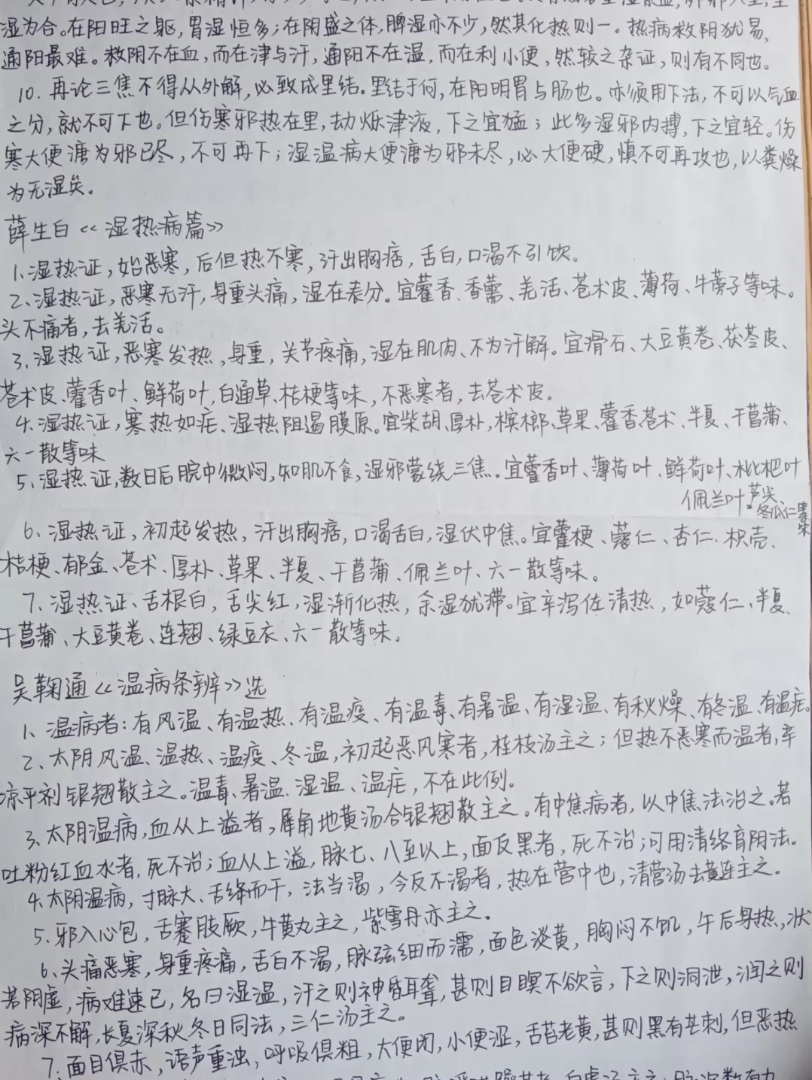 湿为合。在阳旺之躯,胃湿恒多;在阴盛之体,脾湿亦不少,然其化热则一。热病救阴犹易,
通阳最难。救阴不在血,而在津与汗,通阳不在湿,而在利小便,然较之杂证,则有不同也。
10. 再论三焦不得从外解,必致成里结。里结于何,在阳明胃与肠也。亦须用下法,不可以气血
之分,就不可下也。但伤寒邪热在里,劫烁津液,下之宜猛;此多湿邪内搏,下之宜轻。伤
寒大便溏为邪已尽,不可再下;湿温病大便溏为邪未尽,必大便硬,慎不可再攻也,以粪燥
为无湿矣。
薛生白《湿热病篇》
1、湿热证,始恶寒,后但热不寒,汗出胸痞,舌白,口渴不引饮。
2、湿热证,恶寒无汗,身重头痛,湿在表分。宜藿香、香薷、羌活、苍术皮、薄荷、牛蒡子等味。
头不痛者,去羌活。
3、湿热证,恶寒发热,身重,关节疼痛,湿在肌肉、不为汗解。宜滑石、大豆黄卷、茯苓皮、
苍术皮、藿香叶、鲜荷叶,白通草、桔梗等味,不恶寒者,去苍术皮。
4、湿热证,寒热如疟、湿热阻遏膜原。宜柴胡、厚朴,槟榔、草果、藿香苍术、半夏、干菖蒲、
六一散等味
5、湿热证,数日后脘中微闷,知肌不食,湿邪蒙绕三焦。宜藿香叶、薄荷叶、鲜荷叶、枇杷叶
佩兰叶、芦尖、
冬瓜仁等味
6、湿热证,初起发热,汗出胸痞,口渴舌白,湿伏中焦。宜藿梗、蔻仁、杏仁、枳壳、
桔梗、郁金、苍术、厚朴、草果、半夏、干菖蒲、佩兰叶、六一散等味。
7、湿热证、舌根白,舌尖红,湿渐化热,余湿犹滞。宜辛泻佐清热,如蔻仁、半夏、
干菖蒲、大豆黄卷、连翘、绿豆衣、六一散等味,
吴鞠通《温病条辨》选
1、温病者:有风温、有温热、有温疫、有温毒、有暑温、有湿温、有秋燥、有冬温、有温疟。
2、太阴风温、温热、温疫、冬温,初起恶风寒者,桂枝汤主之;但热不恶寒而温者,辛
凉平剂银翘散主之。温毒、暑温、湿温、温疟,不在此例。
3、太阴温病,血从上溢者,犀角地黄汤合银翘散主之。有中焦病者,以中焦法治之。若
吐粉红血水者,死不治;血从上溢,脉七、八至以上,面反黑者,死不治;可用清络育阴法。
4、太阴温病,寸脉大、舌绛而干,法当渴,今反不渴者,热在营中也,清营汤去黄连主之。
5、邪入心包,舌蹇肢厥,牛黄丸主之,紫雪丹亦主之。
6、头痛恶寒,身重疼痛,舌白不渴,脉弦细而濡,面色淡黄,胸闷不饥,午后身热,状
若阴虚,病难速已,名曰湿温,汗之则神昏耳聋,甚则目瞑不欲言,下之则洞泄,润之则
病深不解,长夏深秋冬日同法,三仁汤主之。
7、面目俱赤,语声重浊,呼吸俱粗,大便闭,小便涩,舌苔老黄,甚则黑有芒刺,但恶热